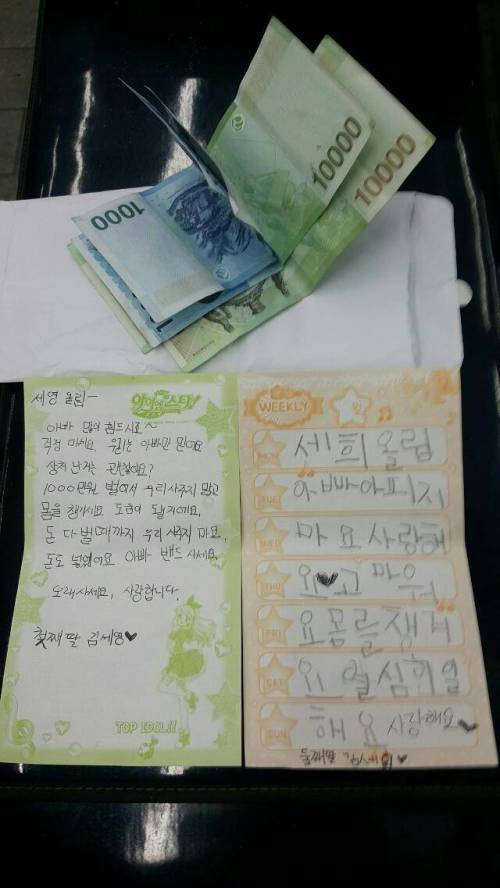 10000
10000
1000
세영 올림ㅡ
아빠 많이 힘드시죠~
걱정 마세요. 우리는 아빠만 믿어요
상처 난 곳은 괜찮아요?
1000만원 벌어서 우리 사주지 말고
몸을 챙기세요 도움이 될거예요,
돈 다 벌 때까지 우리 사주지 마요,
돈도 넣었어요 아빠 밴드 사세요.
오래사세요, 사랑합니다.
첫째 딸 김세영♥
TOP IDOL!!
WEEKLY
MON 세희올림
TUE 아빠아피지
WED 마요사랑해
THU 요♥고마워
FRI 요몸를챙겨
SAT 요 열심히일
SUN 해요 사랑해요♥
둘째딸